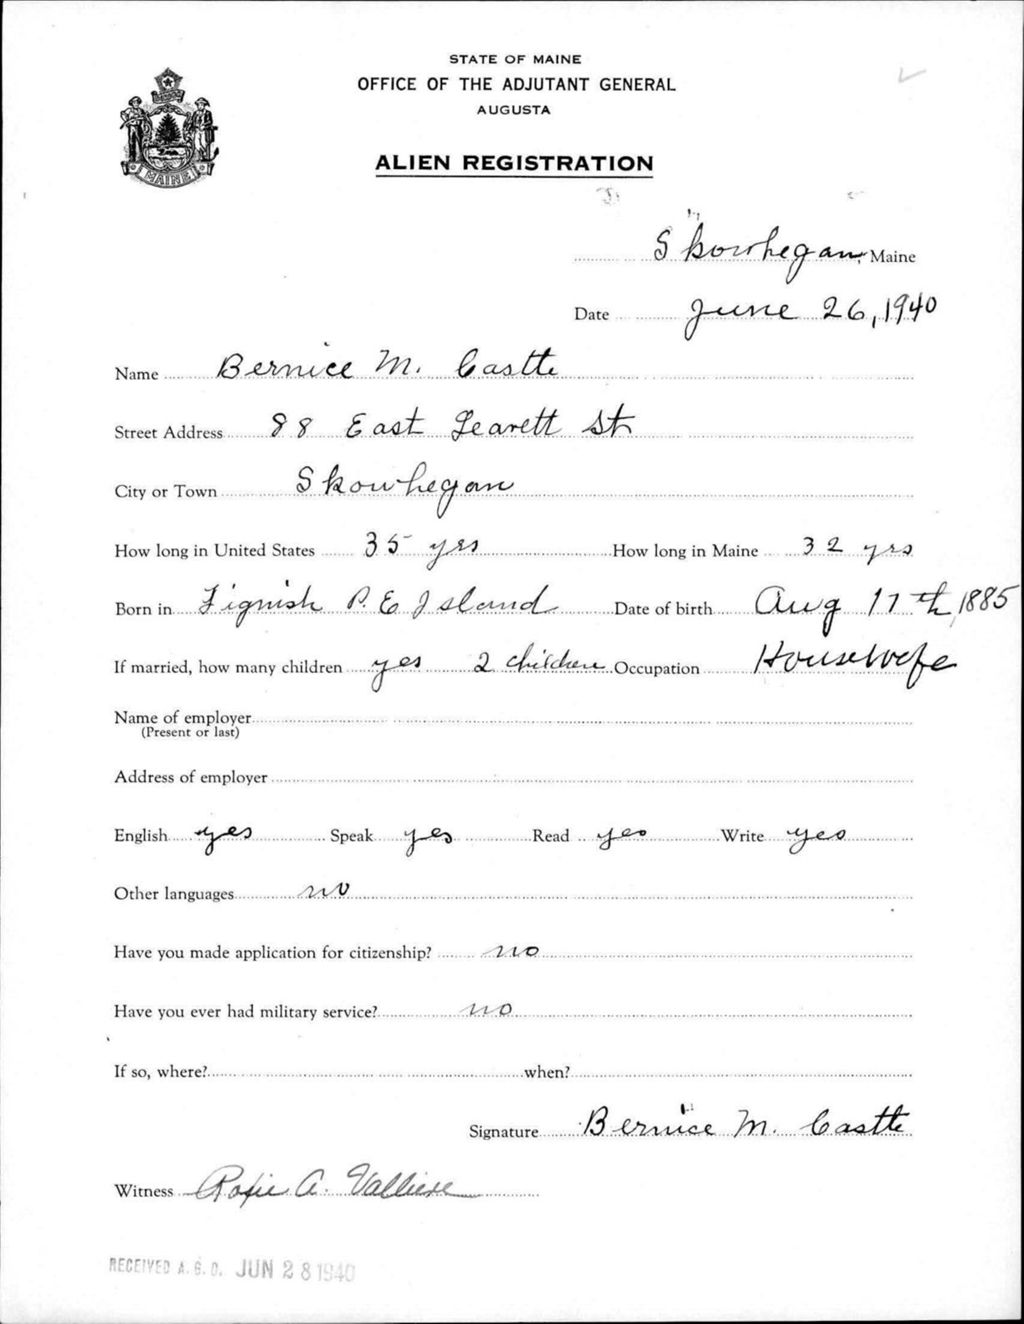 STATE OF MAINE
OFFICE OF THE ADJUTANT GENERAL
AUGUSTA
MAINE
ALIEN REGISTRATION
Skowhegan, Maine
Date June 26, 1940
Name Bernice M. Castle
Street Address 88 East Leavett St
City or Town Skowhegan
How long in United States 35 yrs How long in Maine 32 yrs
Born in Tignish P. E Island Date of birth Aug 17th, 1885
If married, how many children yes 2 children Occupation Housewife
Name of employer
(Present or last)
Address of employer
English yes Speak yes Read yes Write yes
Other languages no
Have you made application for citizenship? no
Have you ever had military service? no
If so, where? when?
Signature Bernice M. Castle
Witness A. Valliere
RECEIVED A. G. O. JUN 28 1940